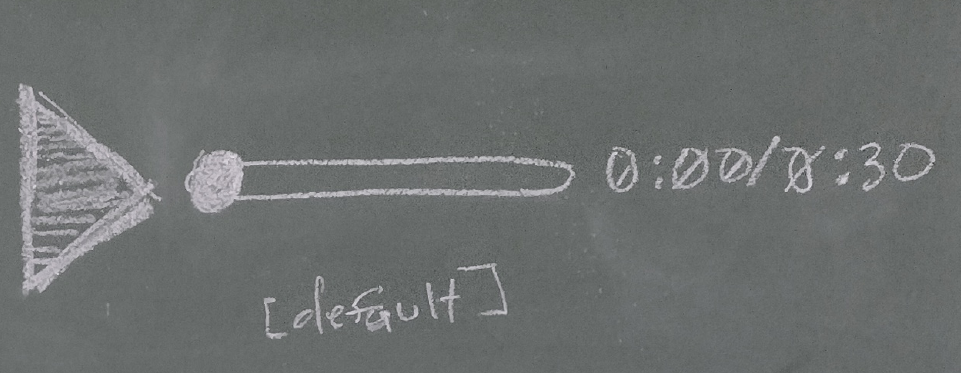 0:00/0:30
[default]